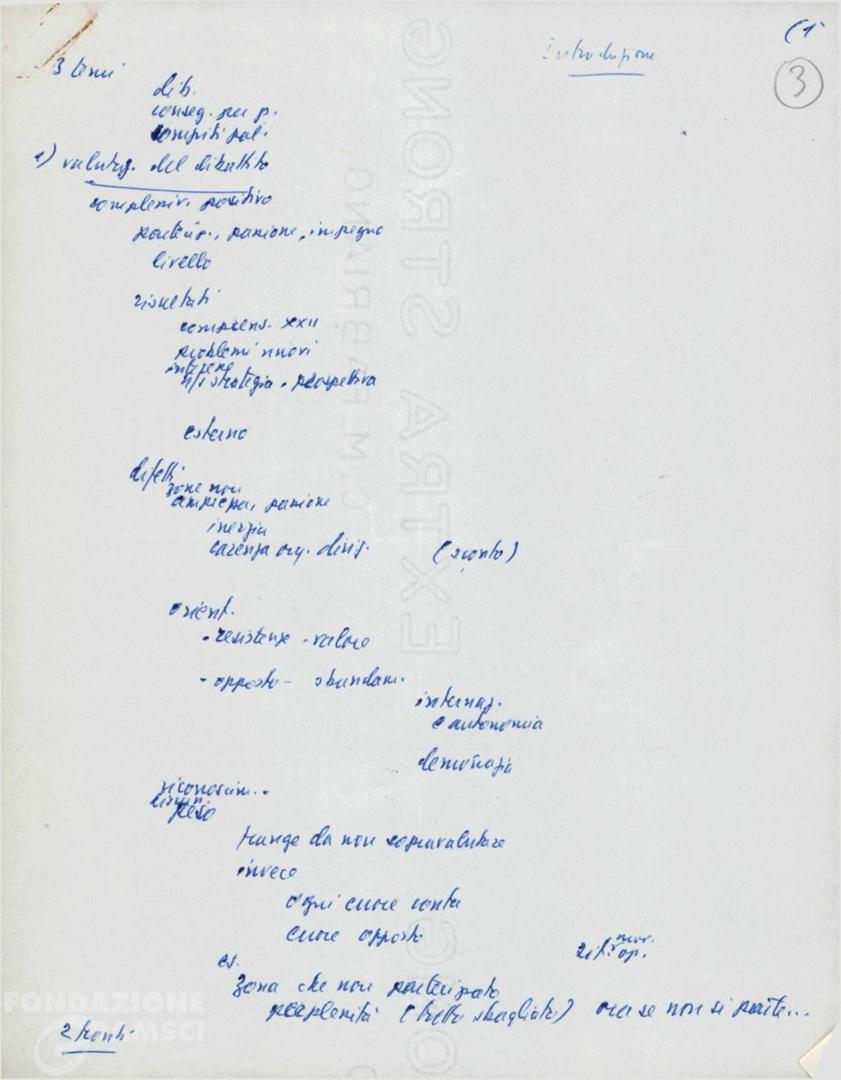 Introduzione
(1
3
3 temi
dib.
conseg. per p.
compiti pol.
1) valutaz. del dibattito
compleniv. positivo
partecip., passione, impegno
livello
risultati
comprens. XXII
problemi nuovi
strategia. prospettiva
esterno
difetti
zone non
ampiezza, passione
inerzia
carenza org. dirig. (sconto)
orient.
- resistenze - valore
- opposto - sbandam.
internaz.
e autonomia
democrazia
riconoscim..
peso
frange da non sopravalutare
invece
ogni cuore conta
cuore opposto
mov.
rif. op.
es.
zona che non partecipato
perplessità (tutto sbagliato) ora se non si parte...
2 fronti
FONDAZIONE
GRAMSCI
EXTRA STRONG
C.M. FABRIANO